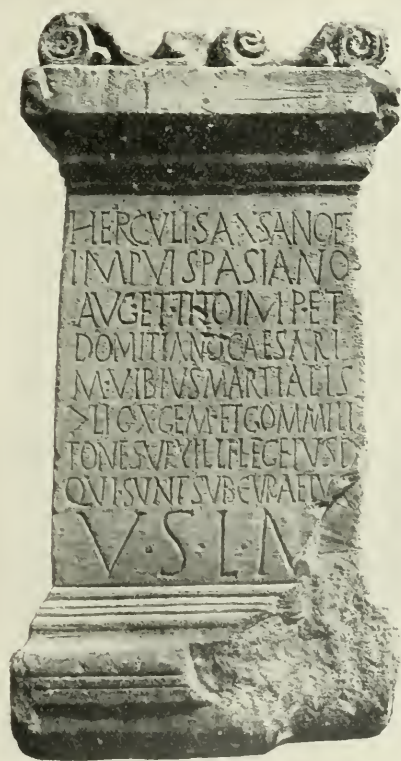 HERCVLI·SAXSANO E
IMP VISPASIANO
AVG ET TITO IMP·ET
DOMITIANO CAESARI
M·VIBIVS MARTIALIS
>LIG·X·GEM·ET COMMILI
TONES VEXILLI LEG EIVSD
QVI·SVNT SVB CVRA EIVS
V·S·L·M